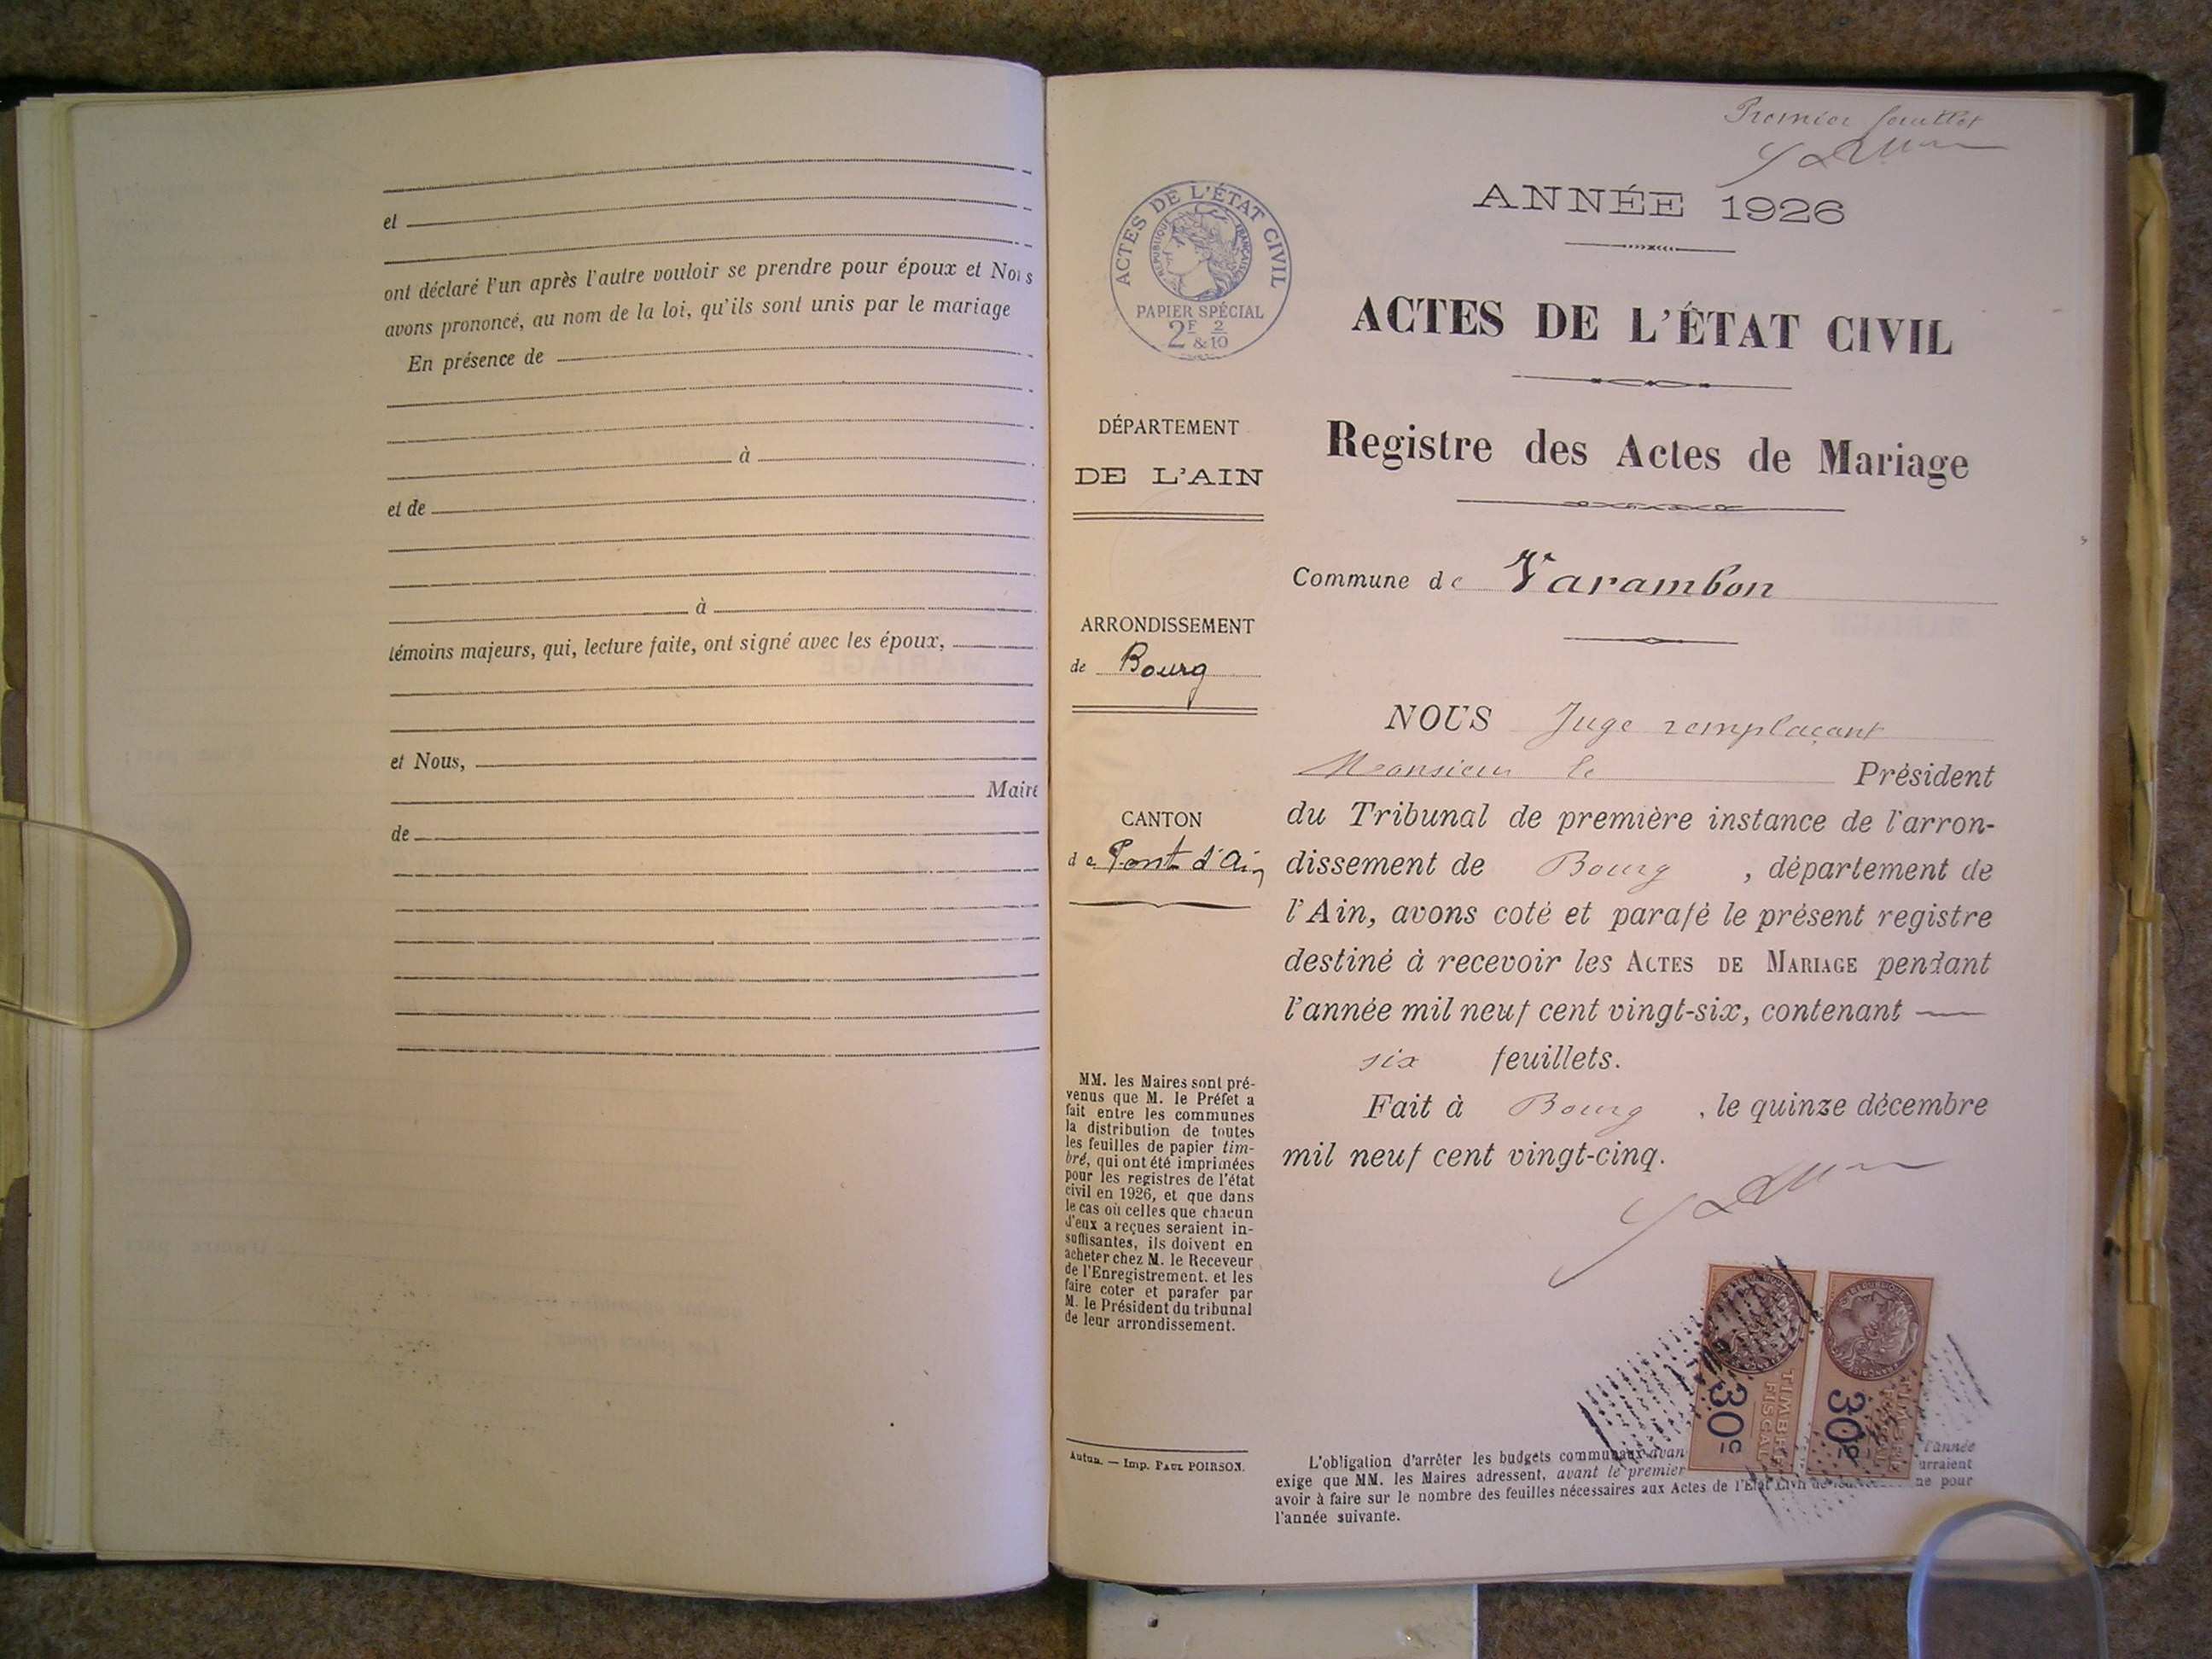 et
ont déclaré l'un après l'autre vouloir se prendre pour époux et Nous
avons prononcé, au nom de la loi, qu'ils sont unis par le mariage
En présence de
à
et de
à
témoins majeurs, qui, lecture faite, ont signé avec les époux,
et Nous,
Maire
de
Premier feuillet
ANNÉE 1926
ACTES DE L'ÉTAT CIVIL
RÉPUBLIQUE FRANÇAISE
PAPIER SPÉCIAL
2F & 2/10
ACTES DE L'ÉTAT CIVIL
Registre des Actes de Mariage
DÉPARTEMENT
DE L'AIN
Commune de Varambon
ARRONDISSEMENT
de Bourg
CANTON
de Pont d'Ain
MM. les Maires sont pré-
venus que M. le Préfet a
fait entre les communes
la distribution de toutes
les feuilles de papier tim-
bré, qui ont été imprimées
pour les registres de l'état
civil en 1926, et que dans
le cas où celles que chacun
d'eux a reçues seraient in-
suffisantes, ils doivent en
acheter chez M. le Receveur
de l'Enregistrement. et les
faire coter et parafer par
M. le Président du tribunal
de leur arrondissement.
Autun. — Imp. PAUL POIRSON.
NOUS Juge remplaçant
Monsieur le Président
du Tribunal de première instance de l'arron-
dissement de Bourg, département de
l'Ain, avons coté et parafé le présent registre
destiné à recevoir les ACTES DE MARIAGE pendant
l'année mil neuf cent vingt-six, contenant —
six feuillets.
Fait à Bourg, le quinze décembre
mil neuf cent vingt-cinq.
TIMBRE
FISCAL
30c
TIMBRE
FISCAL
30c
L'obligation d'arrêter les budgets communaux avan l'année
exige que MM. les Maires adressent, avant le premier urraient
avoir à faire sur le nombre des feuilles nécessaires aux Actes de l'Etat Civil ne pour
l'année suivante.